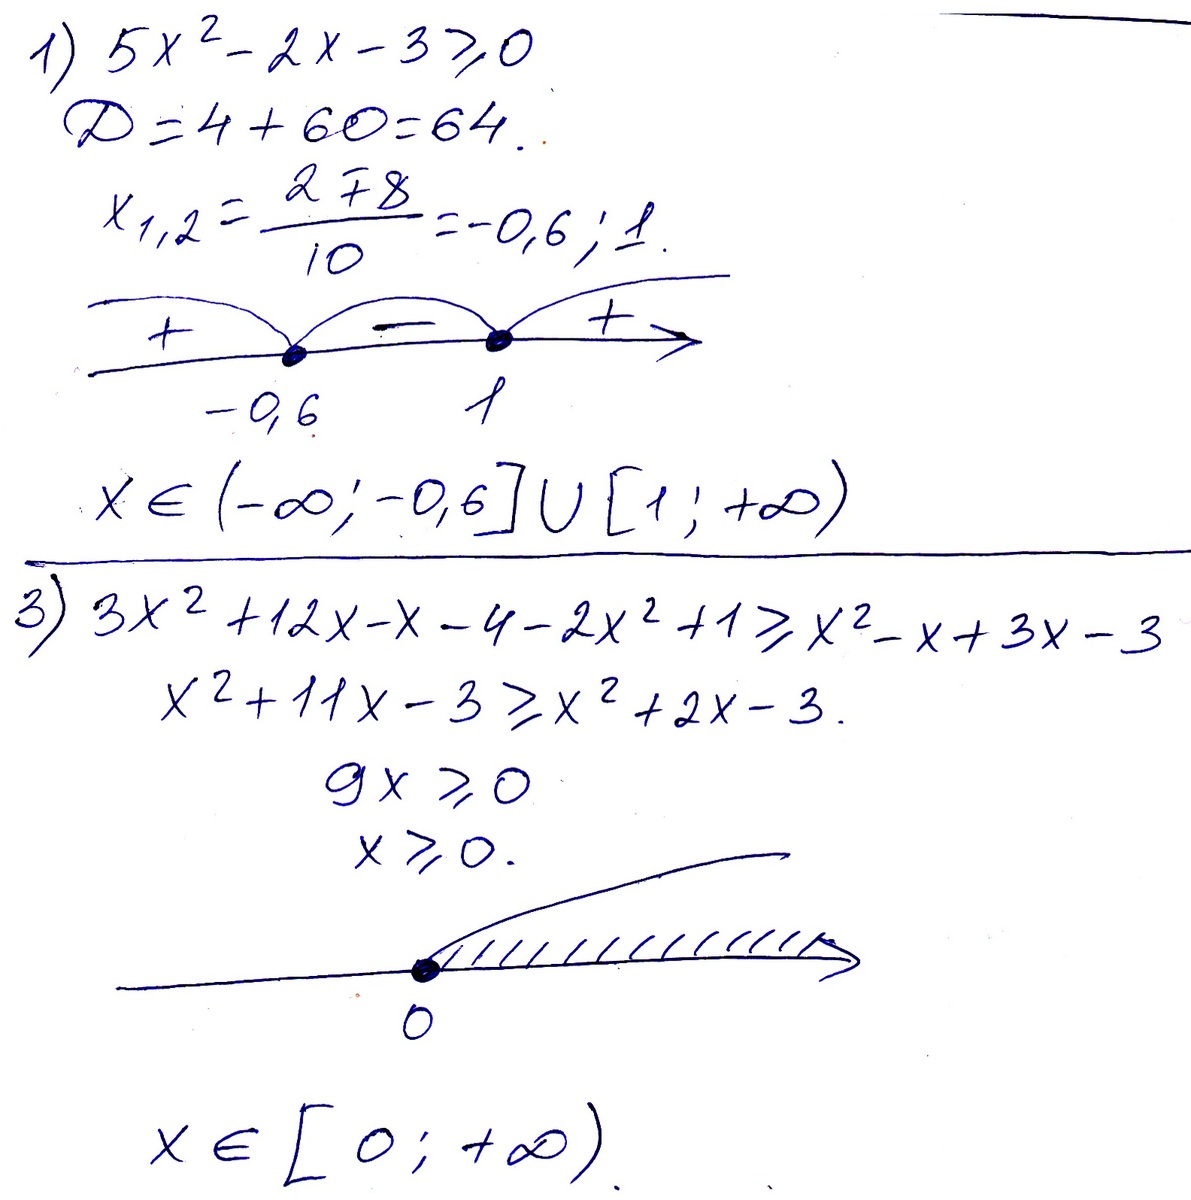 1) 5x² - 2x - 3 ⩾ 0
D = 4 + 60 = 64.
x₁,₂ = (2 ∓ 8)/10 = -0,6 ; 1.
+ - +
-0,6 1
x ∈ (-∞; -0,6] ∪ [1; +∞)
3) 3x² + 12x - x - 4 - 2x² + 1 ⩾ x² - x + 3x - 3
x² + 11x - 3 ⩾ x² + 2x - 3.
9x ⩾ 0
x ⩾ 0.
0
x ∈ [0; +∞).